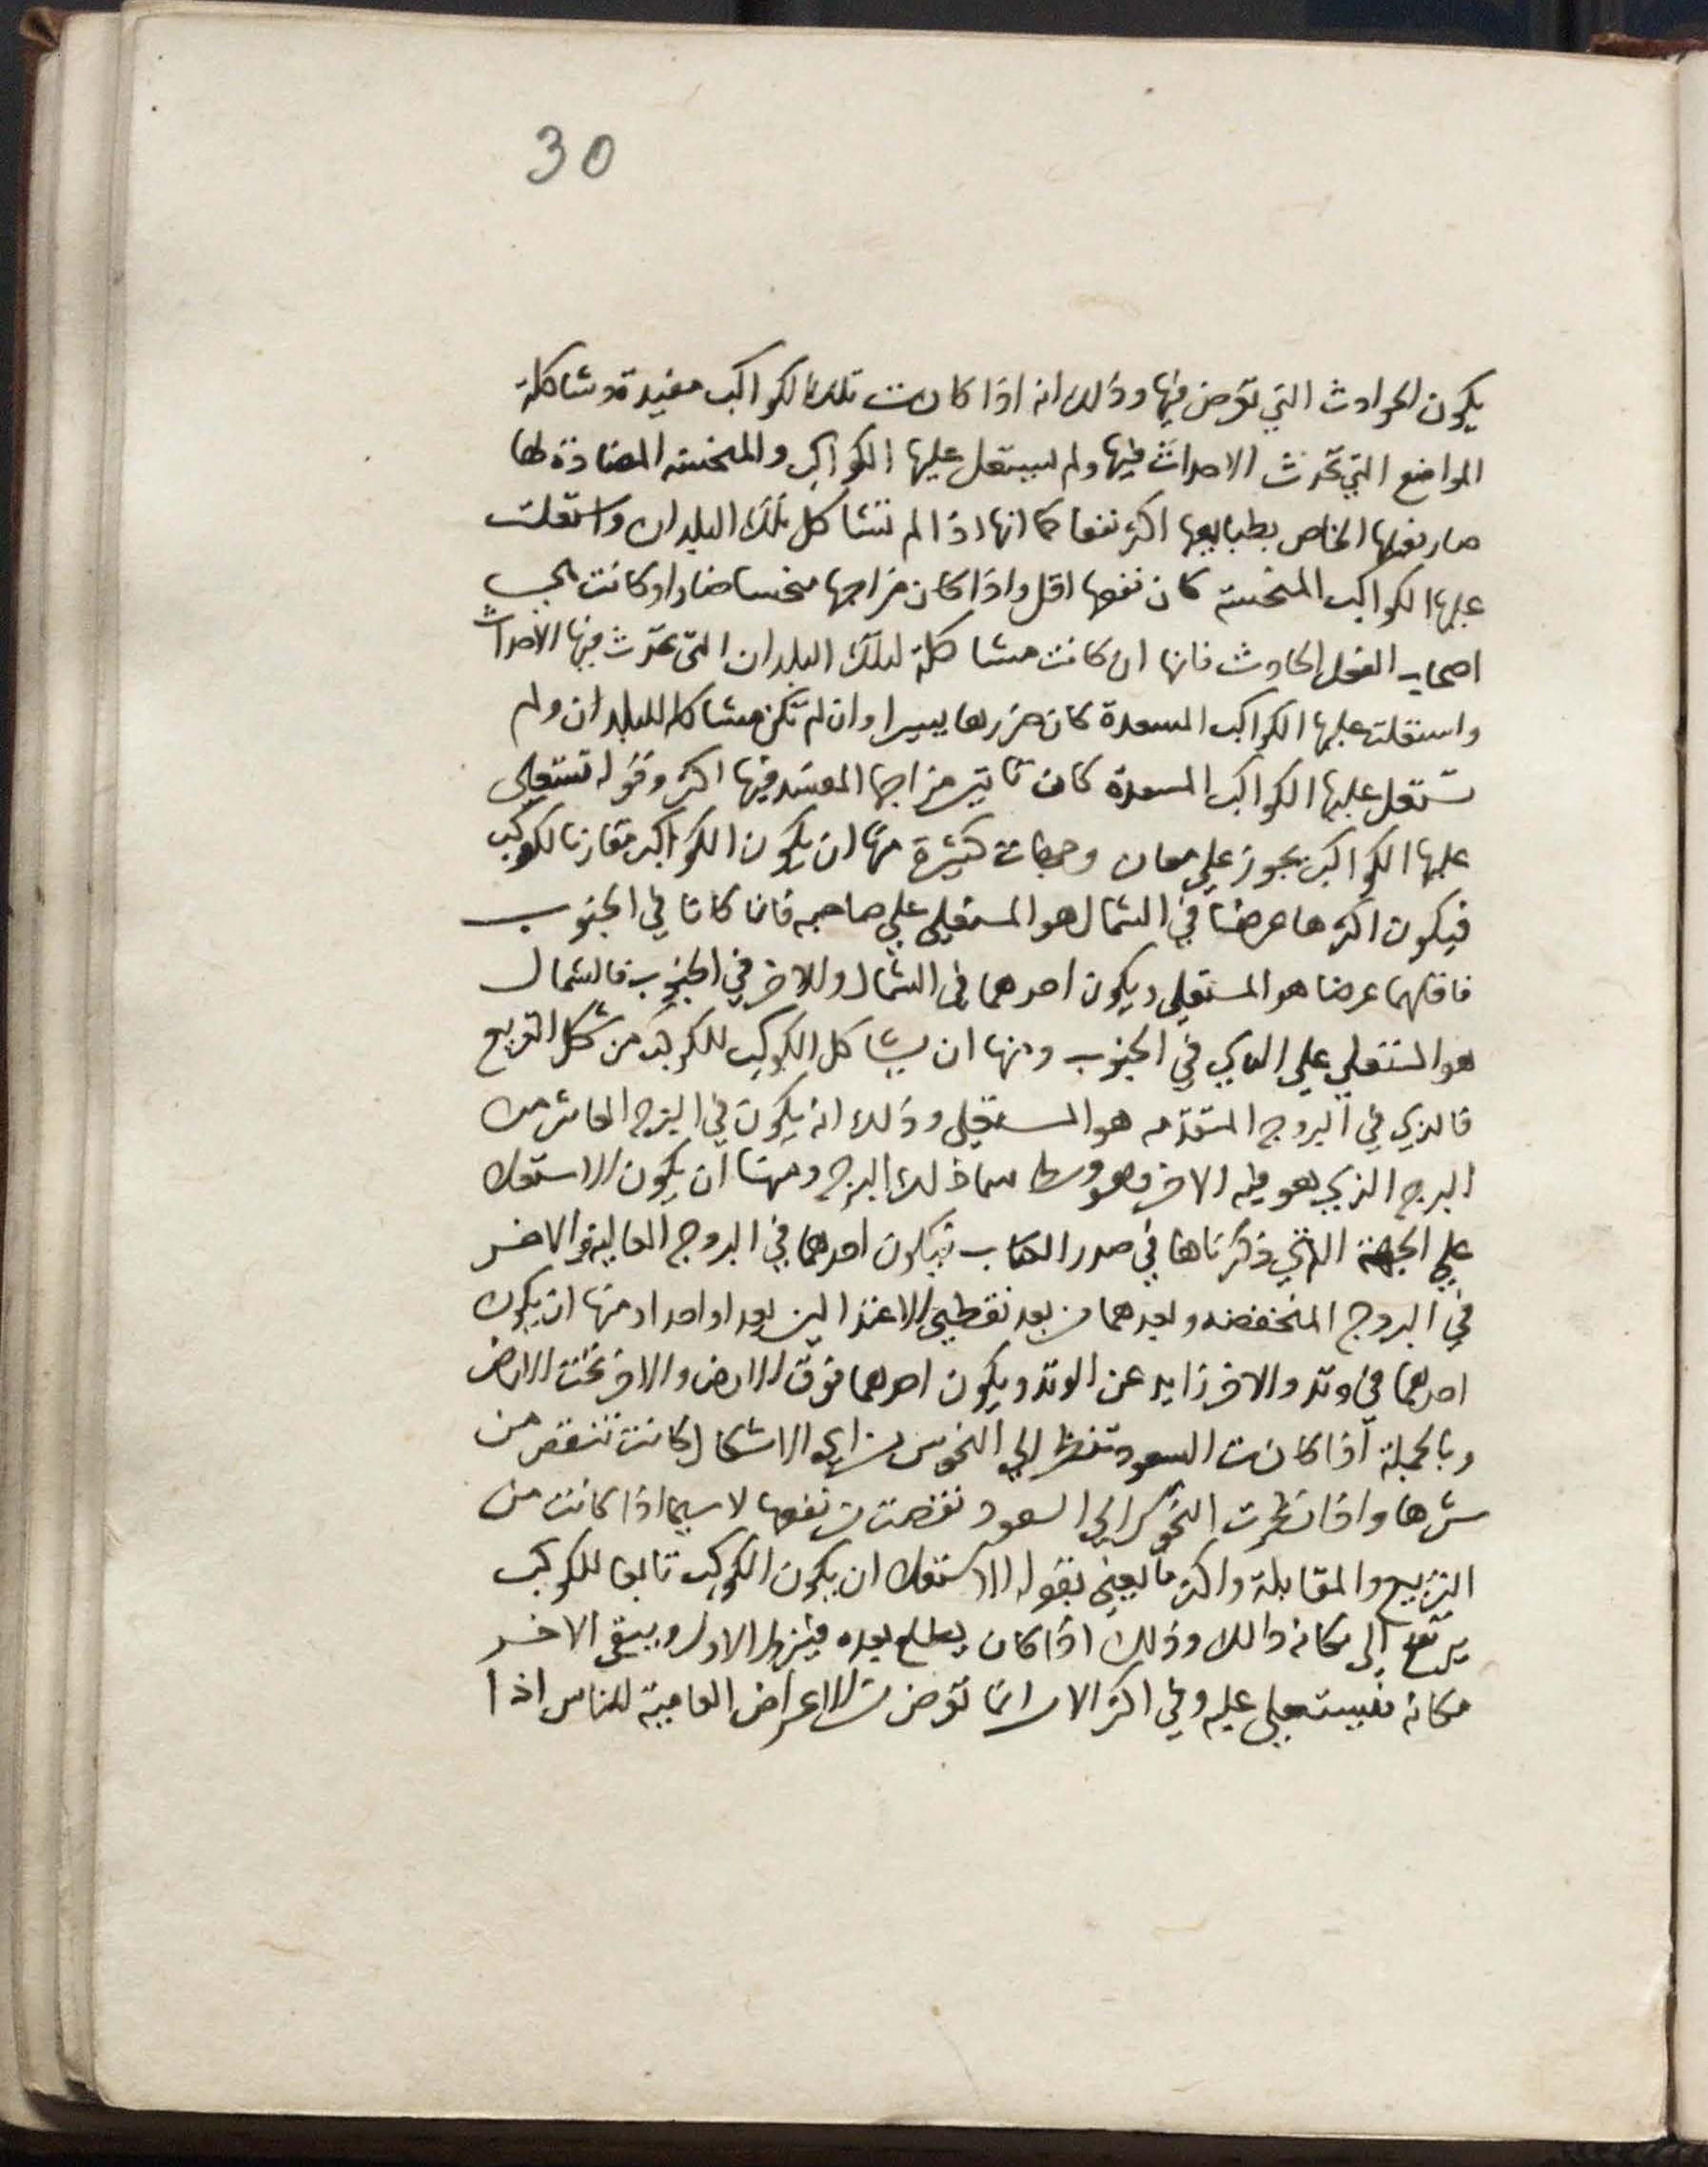 30
يكون الحوادث التي تعرض فيها وذلك انه اذا كانت تلك الكواكب مفيدة ومشاكلة
المواضع التي تحدث الاحداث فيها ولم يستعل عليها الكواكب والمنحسة المضادة لها
صار فعلها الخاص بطبايعها اكثر نفعا كما انها اذا لم تتشاكل تلك البلدان واستعلت
عليها الكواكب المنحسة كان نفعها اقل واذا كان مزاجها منحسا ضارا وكانت هي
اصحاب الفعل الحادث فانها ان كانت مشاكلة لتلك البلدان التي تحدث فيها الاحداث
واستعلت عليها الكواكب المسعدة كان ضررها يسيرا وان لم تكن مشاكلة للبلدان ولم
تستعل عليها الكواكب المسعدة كان تاثير مزاجها المفسد فيها اكثر وقوله تستعلي
عليها الكواكب يجوز على معان وجهات كثيرة منها ان يكون الكواكب مقارنا لكوكب
فيكون اكثرها عرضا في الشمال هو المستعلي على صاحبه فاذا كانا في الجنوب
فاقلهما عرضا هو المستعلي ويكون احدهما في الشمال والاخر في الجنوب فالشمال
هو المستعلي على الذي في الجنوب ومنها ان يشاكل الكوكب للكوكب من شكل التربيع
فالذي في البروج المتقدمه هو المستعلي وذلك انه يكون في البرج العاشر من
البرج الذي هو فيه الاخر وهو وسط سما ذلك البرج ومنها ان يكون الاستعلا
على الجهة التي ذكرناها في صدر الكتاب فيكون احدهما في البروج العالية والاخر
في البروج المنخفضه وبعدهما من بعد نقطتي الاعتدالين بعدا واحدا ومنها ان يكون
احدهما في وتد والاخر زايد عن الوتد ويكون احدهما فوق الارض والاخر تحت الارض
وبالجملة اذا كانت السعود تنظر الى النحوس من اي الاشكال كانت تنقص من
شرها واذا نظرت النحوس الى السعود نقصت من نفعها لا سيما اذا كانت من
التربيع والمقابلة واكثر ما يعني بقوله الاستعلا ان يكون الكوكب تابعا للكوكب
يرتفع الى مكانه ذالك وذلك اذا كان يطلع بعده فيزول الاول ويبقى الاخر
مكانه فيستعلي عليه وفي اكثر الامر انما تعرض من الاعراض العامية للناس اذا